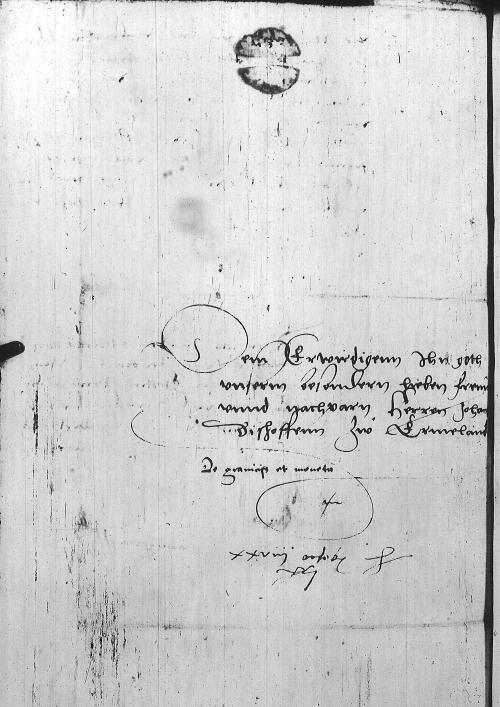 Dem Erwirdigenn Ihn goth
vnserm besondern lieben frein
vnnd nachparn Herren Johan
Bisshoffenn zw Ermelandt
De graniciis et moneta
xxviij octobris